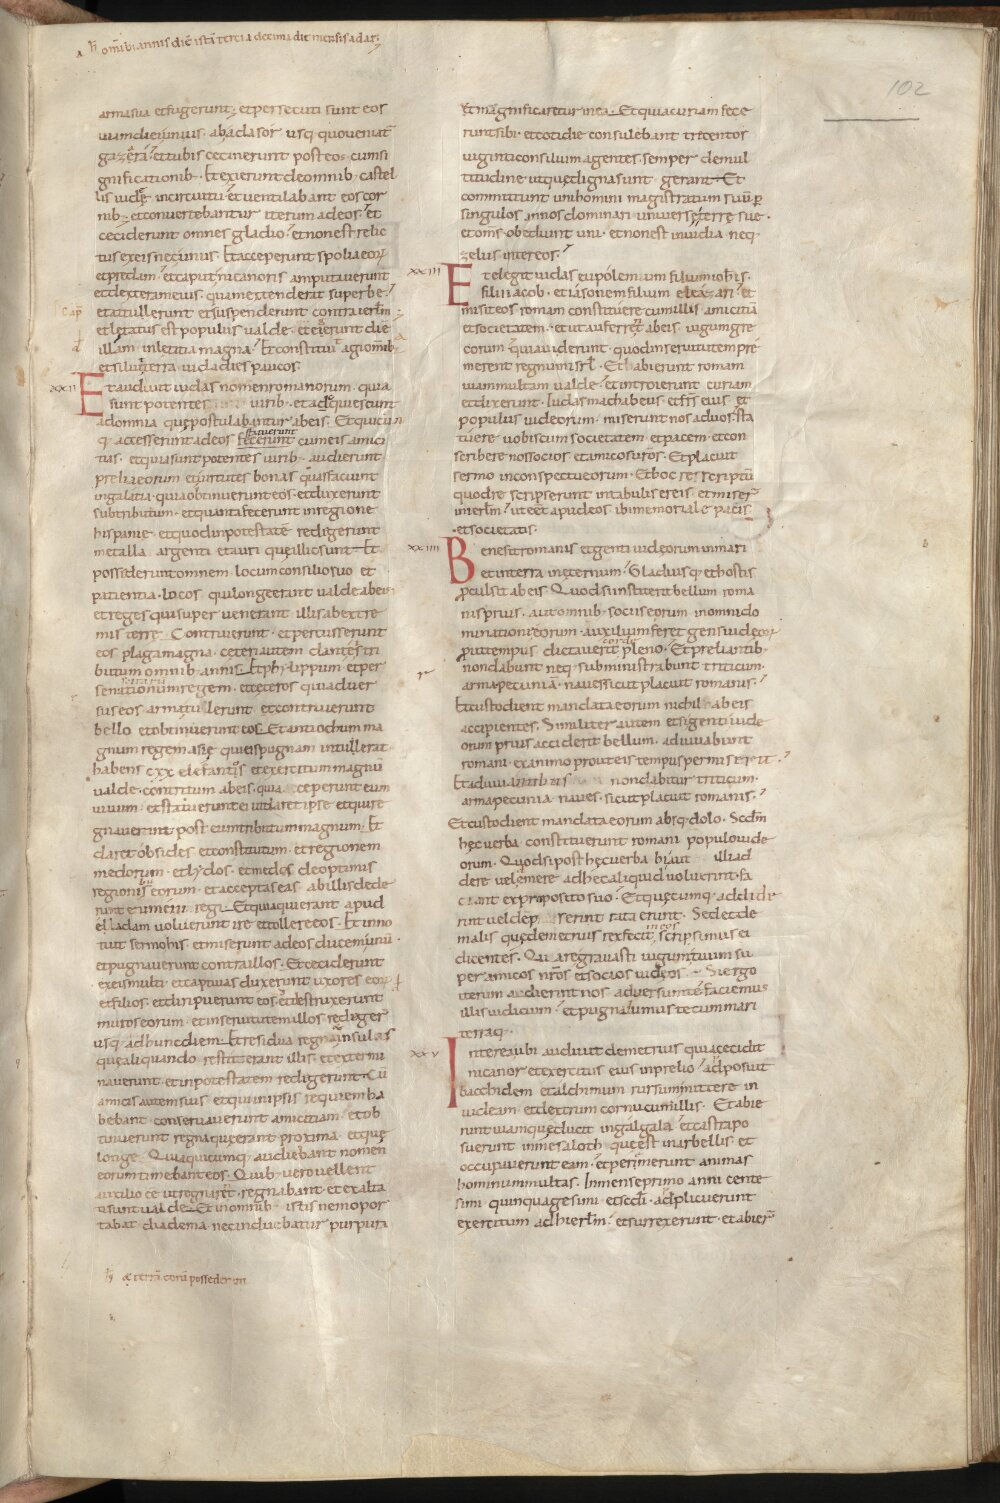 omnib; annis diē istā tercia decima die mensis adar;
102
arma sua et fugerunt; et persecuti sunt eos
viam diei unius ab adasor usq quo veniat̄
gazera; et tubis cecinerunt post eos cum si
gnificationib; Et exierunt de omnib; castel
lis iudeę in circuitu; et ventilabant eos cor
nib; et convertebantur iterum ad eos; et
ceciderunt omnes gladio; et non est relic
tus ex eis nec unus. Et acceperunt spolia eoꝝ
et predam; et caput nicanoris amputaverunt
et dexteram eius quam extenderat superbe;
et attullerunt et suspenderunt contra ierłm
et lętatus est populus valde. et egerunt diē
illam in letitia magna; Et constituit agi omnib;
et siluit terra iuda dies paucos.
XXII
Et audivit iudas nomen romanorum. quia
sunt potentes virib; et adquiescunt
ad omnia quę postulabantur ab eis. Et quicun
q; accesserunt ad eos fecerunt cum eis amici
statuerunt
tias. et quia sunt potentes virib; audierunt
prelia eorum et virtutes bonas quas faciunt
in galatia. quia obtinuerunt eos. et duxerunt
sub tributum. et quanta fecerunt in regione
hispanie. et quod in potestatē redigerunt
metalla argenti et auri quę illic sunt. Et
possiderunt omnem locum consilio suo et
patientia. locos qui longe erant valde ab eis
et reges qui super venerant illis ab extre
mis terre. Contriverunt et percusserunt
eos plaga magna. ceteri autem dant eis tri
butum omnib; annis. Et philippum et per
sen regem. et ceteros qui adver
sus eos arma tullerunt. et contriverunt
bello et obtinuerunt eos. Et antiochum ma
gnum regem asię qui eis pugnam intullerat
habens cxx elefantos et exercitum magnū
valde. contritum ab eis. quia ceperunt eum
vivum. et statuerunt ei ut daret ipse et qui re
gnaverint post eum tributum magnum. Et
daret obsides et constitutum. et regionem
medorum. et lydos. et medos de optimis
regionibus eorum. et acceptas eas ab illis dede
runt eumeni regi. Et quia qui erant apud
elladam voluerunt ire et tollere eos. Et inno
tuit sermo his. et miserunt ad eos ducem unū.
et pugnaverunt contra illos. Et ceciderunt
ex eis multi. et captivas duxerunt uxores eoꝝ
et filios. et diripuerunt eos. et destruxerunt
muros eorum. et in servitutem illos redeger̄
usq; ad hunc diem. Et residua regna. et insulas
quę aliquando restiterant illis. et extermi
naverunt. et in potestatem redigerunt. Cū
amicis autem suis et qui in ipsis requiem ha
bebant conservaverunt amicitiam. et ob
tinuerunt regna quę erant proxima. et quę
longe. Quia quicumq; audiebant nomen
eorum timebant eos. Quib; vero vellent
auxilio ēē ut regnaret. regnabant. et exalta
ti sunt valde. Et in omnib; istis nemo por
tabat diadema. nec induebatur purpura
et terrā eorū possederun
et magnificaretur in ea. Et quia curiam fece
runt sibi. et cotidie consulebant trecentos
viginti consilium agentes semper de mul
titudine ut quę digna sunt gerant. Et
committunt uni homini magistratum suū ꝑ
singulos annos dominari universę terrę sue.
et om̄s obediunt uni. et non est invidia neq;
zelus inter eos;
XXIII
Et elegit iudas eupolemum filium iohīs.
filii iacob. et iasonem filium eleazari et
misit eos romam constituere cum illis amicitiā
et societatem. et ut auferret ab eis iugum gre
corum. quia viderunt. quod in servitutem pre
merent regnum isrł. Et habierunt romam
viam multam valde. et introierunt curiam
et dixerunt. Iudas machabeus et fr̄s eius et
populus iudeorum. miserunt nos ad vos. sta
tuere vobiscum societatem. et pacem. et con
scribere nos socios et amicos ur̄os. Et placuit
sermo in conspectu eorum. Et hoc rescriptū
quod rescripserunt in tabulis ereis. et miser̄
in ierłm. ut eēt apud eos ibi memoriale pacis
et societatis.
XXIIII
Bene sit romanis et genti iudeorum in mari
et in terra in ęternum. Gladiusq; et hostis
procul sit ab eis. Quod si institerit bellum roma
nis prius. aut omnib; sociis eorum in omni do
minatione eorum. auxilium feret gens iudeoꝝ
prout tempus dictaverit corde pleno. Et preliantib;
non dabunt neq; subministrabunt triticum.
arma pecuniā. naves sicut placuit romanis;
Et custodient mandata eorum nichil ab eis
accipientes. Similiter autem et si genti iude
orum prius acciderit bellum. adiuvabunt
romani ex animo prout eis tempus permiserit;
Et adiuvantibus non dabitur triticum.
arma pecunia naves. sicut placuit romanis;
Et custodient mandata eorum absq; dolo. Scdm̄
hęc verba constituerunt romani populo iude
orum. Quod si post hęc verba hi aut illi ad
dere vel demere ad hec aliquid voluerint. fa
ciant ex proposito suo. Et quęcumq; addide
rint vel demp serint rata erunt. Sed et de
malis quę demetrius rex fecit in eos scripsimus ei
dicentes. Quare gravasti iugum tuum su
per amicos nr̄os et socios iudęos. Si ergo
iterum adierint nos adversum te faciemus
illis iudicium. et pugnabimus tecum mari
terraq;.
XXV
Interea ubi audivit demetrius quia cecidit
nicanor et exercitus eius in prelio. adposuit
bacchidem et alchimum rursum mittere in
iudeam. et dextrum cornu cum illis. Et abie
runt viam quę ducit in galgala. et castra po
suerunt in mesaloth. quę est in arbellis. et
occupaverunt eam. et peremerunt animas
hominum multas. In mense primo anni cente
simi quinquagesimi et sc̄di. adplicuerunt
exercitum ad hierłm. et surrexerunt. et abier̄